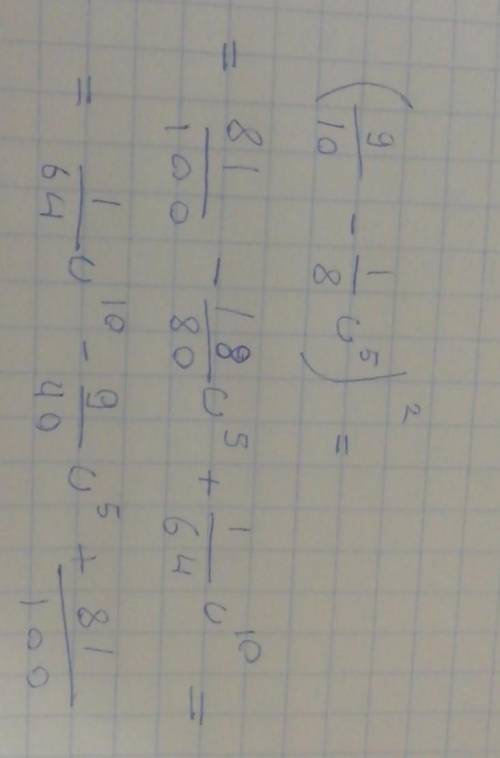 (9/10 - 1/8 c⁵)² =
= 81/100 - 18/80 c⁵ + 1/64 c¹⁰ =
= 1/64 c¹⁰ - 9/40 c⁵ + 81/100